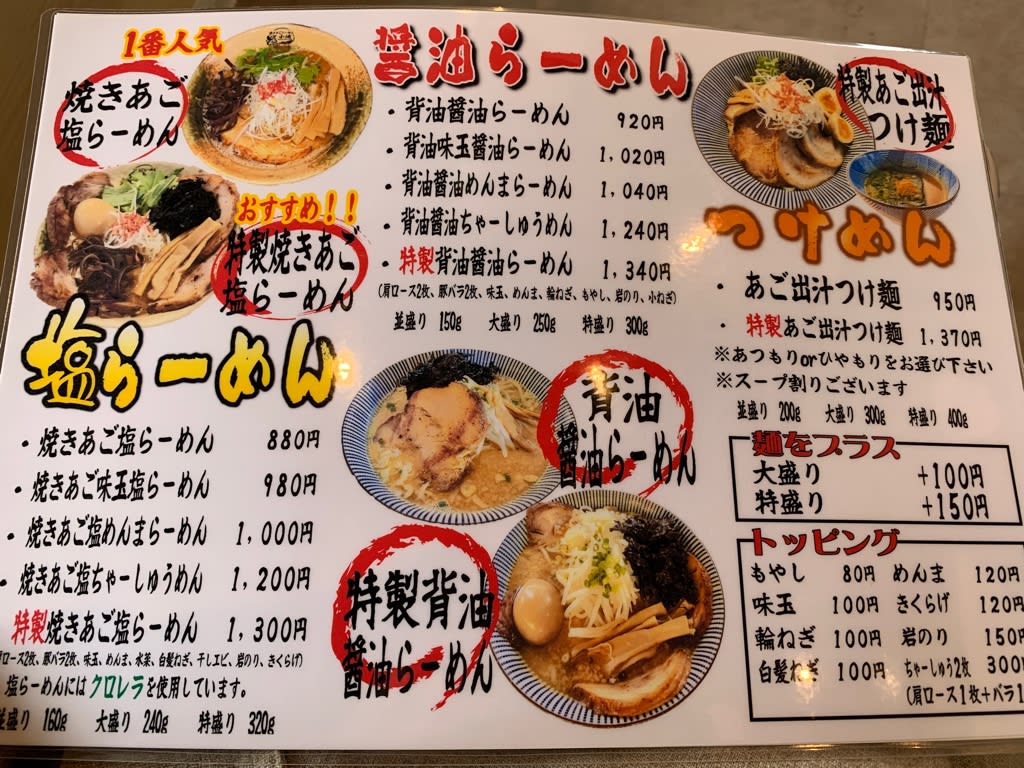 1番人気
焼きあご
塩らーめん
おすすめ!!
特製焼きあご
塩らーめん
塩らーめん
・焼きあご塩らーめん 880円
・焼きあご味玉塩らーめん 980円
・焼きあご塩めんまらーめん 1,000円
・焼きあご塩ちゃーしゅうめん 1,200円
特製焼きあご塩らーめん 1,300円
ロース2枚、豚バラ2枚、味玉、めんま、水菜、白髪ねぎ、干しエビ、岩のり、きくらげ)
塩らーめんにはクロレラを使用しています。
並盛り 160g 大盛り 240g 特盛り 320g
醤油らーめん
・背油醤油らーめん 920円
・背油味玉醤油らーめん 1,020円
・背油醤油めんまらーめん 1,040円
・背油醤油ちゃーしゅうめん 1,240円
・特製背油醤油らーめん 1,340円
(肩ロース2枚、豚バラ2枚、味玉、めんま、輪ねぎ、もやし、岩のり、小ねぎ)
並盛り 150g 大盛り 250g 特盛り 300g
背油
醤油らーめん
特製背油
醤油らーめん
特製あご出汁
つけ麺
つけめん
・あご出汁つけ麺 950円
・特製あご出汁つけ麺 1,370円
※あつもりorひやもりをお選び下さい
※スープ割りございます
並盛り 200g 大盛り 300g 特盛り 400g
麺をプラス
大盛り +100円
特盛り +150円
トッピング
もやし 80円 めんま 120円
味玉 100円 きくらげ 120円
輪ねぎ 100円 岩のり 150円
白髪ねぎ 100円 ちゃーしゅう2枚 300円
(肩ロース1枚+バラ1